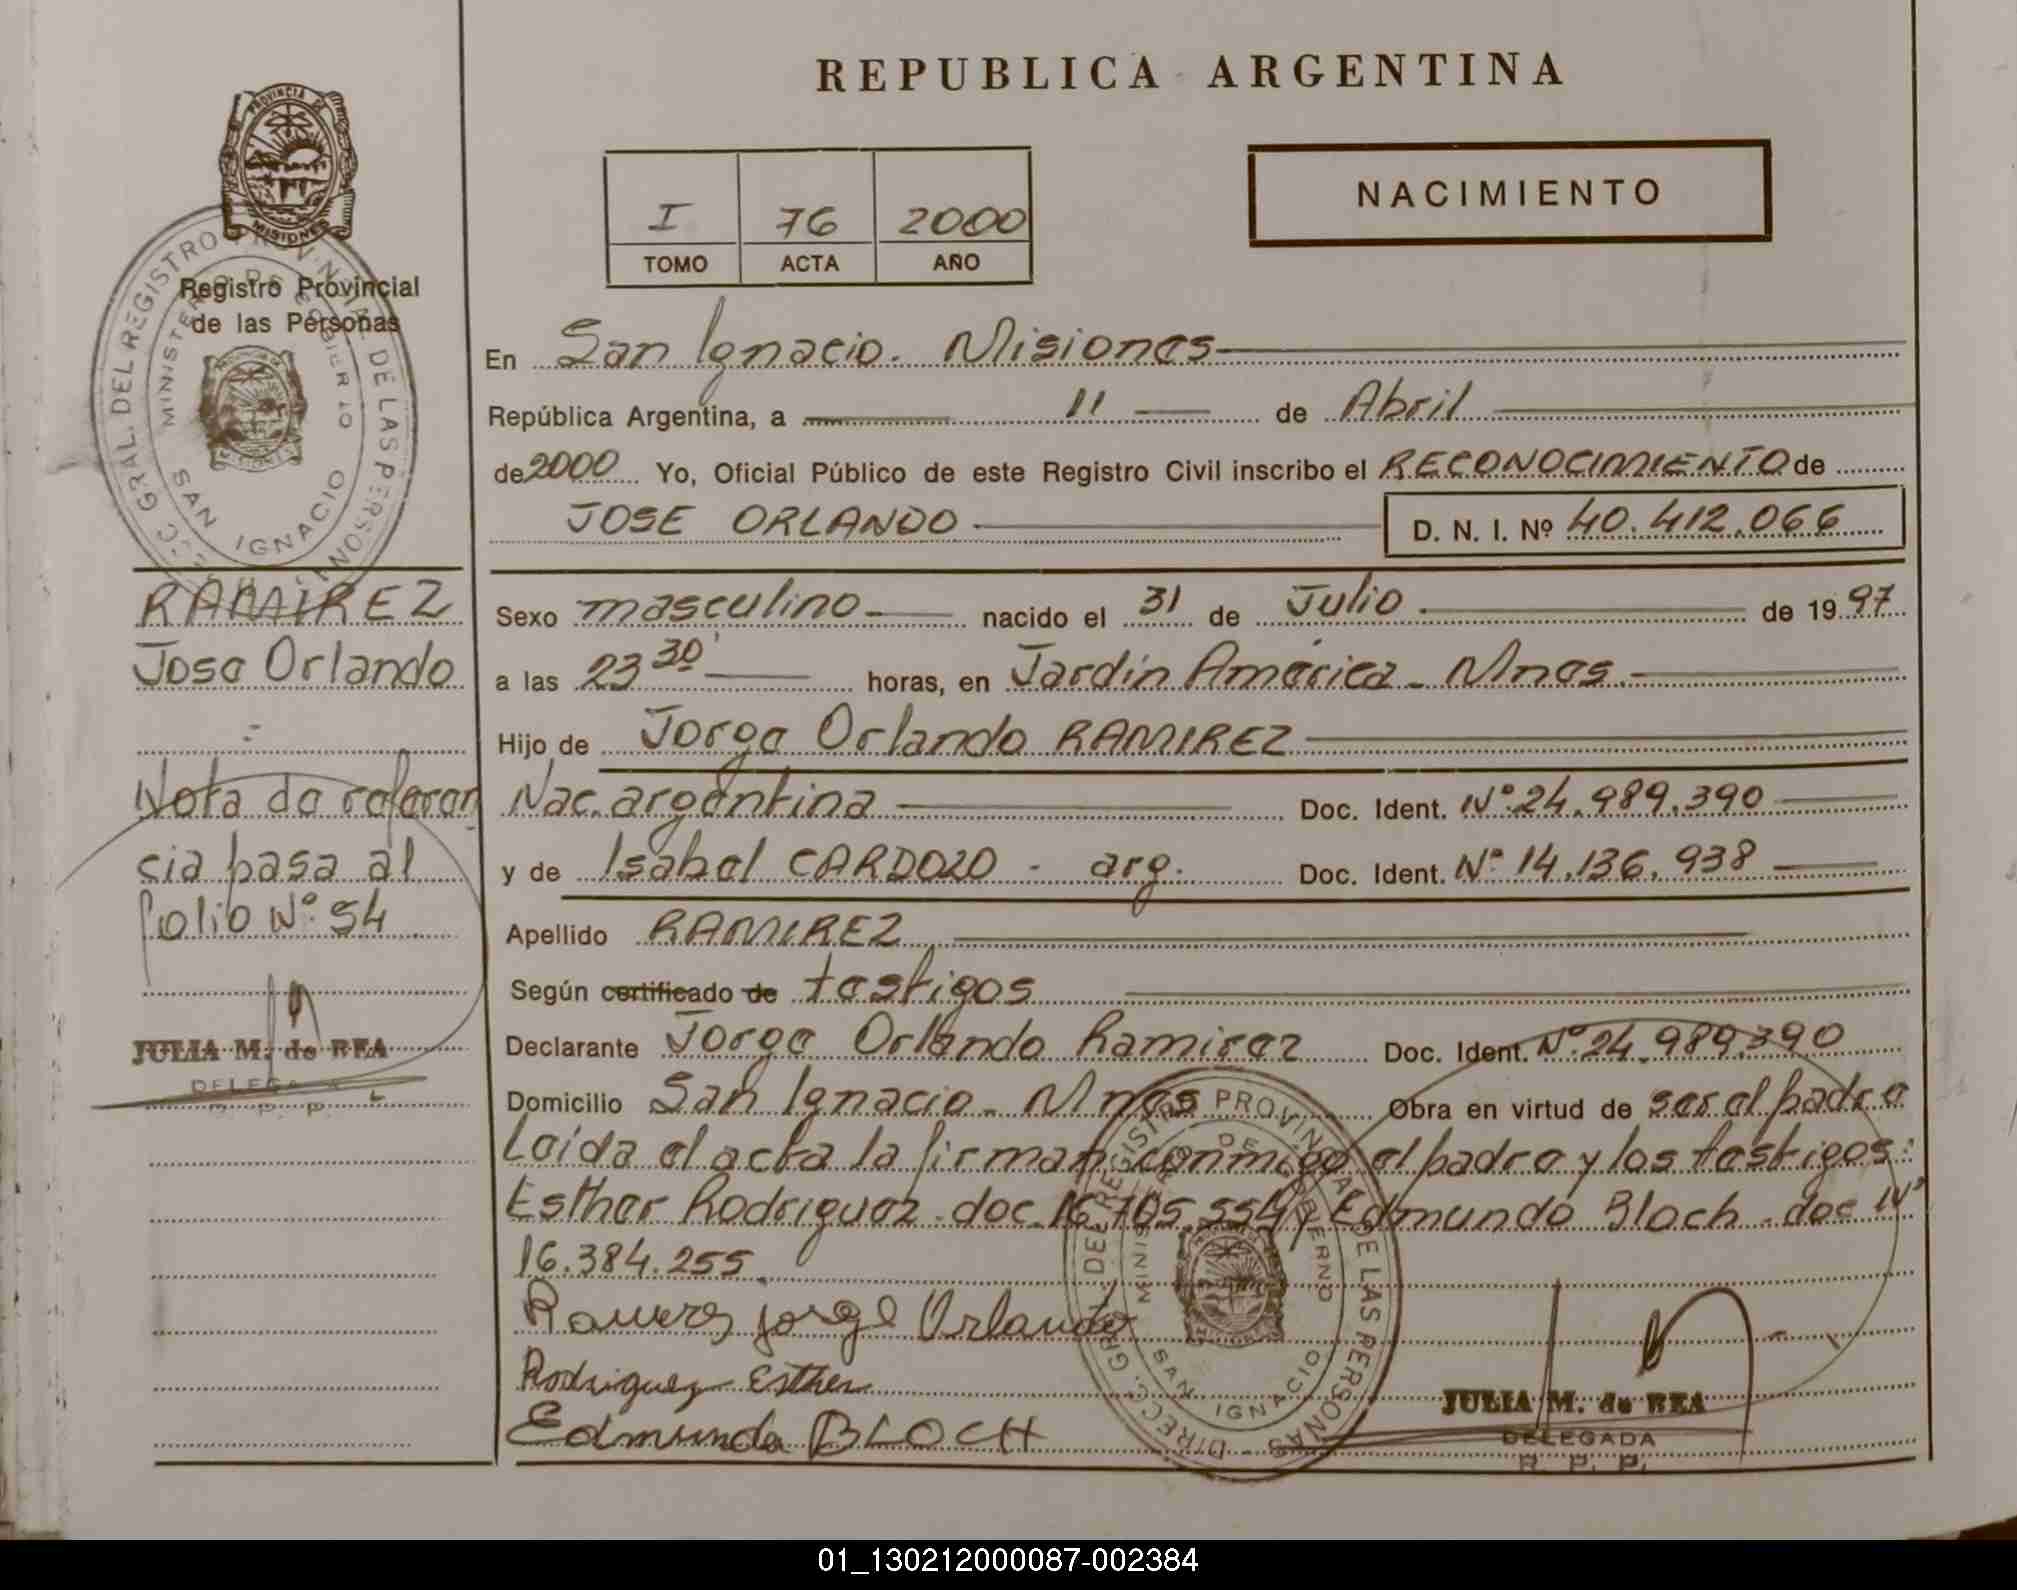 REPUBLICA ARGENTINA
PROVINCIA DE MISIONES
Registro Provincial
de las Personas
DIRECC. GRAL. DEL REGISTRO PROVINCIAL DE LAS PERSONAS
MINISTERIO DE GOBIERNO
SAN IGNACIO
I 76 2000
TOMO ACTA AÑO
NACIMIENTO
RAMIREZ
Jose Orlando
Nota de referen
cia pasa al
folio Nº 54
JULIA M. de REA
DELEGADA
R. P. P.
En San Ignacio. Misiones
República Argentina, a 11 de Abril
de 2000 Yo, Oficial Público de este Registro Civil inscribo el RECONOCIMIENTO de
JOSE ORLANDO D. N. I. Nº 40.412.066
Sexo masculino nacido el 31 de Julio de 1997
a las 23 30' horas, en Jardín América - Mnes.
Hijo de Jorge Orlando RAMIREZ
Nac. argentina Doc. Ident. Nº 24.989.390
y de Isabel CARDOZO - arg. Doc. Ident. Nº 14.136.938
Apellido RAMIREZ
Según certificado de testigos
Declarante Jorge Orlando Ramirez Doc. Ident. Nº 24.989.390
Domicilio San Ignacio - Mnes Obra en virtud de ser el padre
Leída el acta la firman conmigo el padre y los testigos:
Esther Rodriguez - doc. 16.705.554 y Edmundo Bloch - doc Nº
16.384.255
Ramirez Jorge Orlando
Rodriguez Esther
Edmundo BLOCH
DIRECC. GRAL. DEL REGISTRO PROVINCIAL DE LAS PERSONAS
MINISTERIO DE GOBIERNO
SAN IGNACIO
JULIA M. de REA
DELEGADA
R. P. P.
01_130212000087-002384